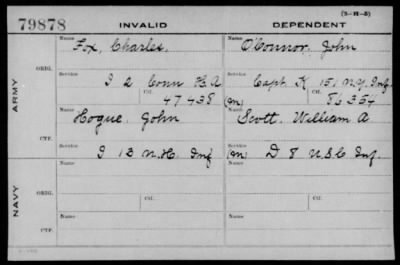 (3-H-5)
79878 INVALID DEPENDENT
Name Name
Fox, Charles. O'Connor, John
ORIG. Service Service
I 2 Conn H.A. Capt. K 151 N.Y. Inf
Ctf. Ctf.
47438 (m) 86354
ARMY
Name Name
Hogue, John Scott, William A
CTF. Service Service
I 13 N.H. Inf (m) D 8 U.S.C. Inf.
NAVY
Name Name
ORIG.
Service Ctf. Service Ctf.
Name Name
CTF.
Service Service